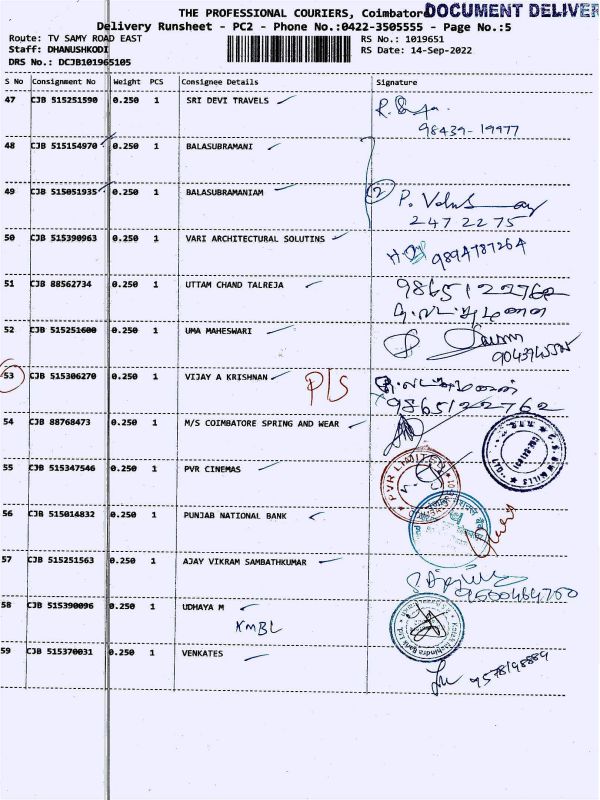 THE PROFESSIONAL COURIERS, Coimbator DOCUMENT DELIVER
Delivery Runsheet - PC2 - Phone No.:0422-3505555 - Page No.:5
Route: TV SAMY ROAD EAST RS No.: 1019651
Staff: DHANUSHKODI RS Date: 14-Sep-2022
DRS No.: DCJB101965105
S No Consignment No Weight PCS Consignee Details Signature
47 CJB 515251590 0.250 1 SRI DEVI TRAVELS
98439-19977
48 CJB 515154970 0.250 1 BALASUBRAMANI
49 CJB 515051935 0.250 1 BALASUBRAMANIAM 2
247 22 75
50 CJB 515390963 0.250 1 VARI ARCHITECTURAL SOLUTINS 9894787264
51 CJB 88562734 0.250 1 UTTAM CHAND TALREJA 9865122762
52 CJB 515251600 0.250 1 UMA MAHESWARI
53 CJB 515306270 0.250 1 VIJAY A KRISHNAN P/S
9865122762
54 CJB 88768473 0.250 1 M/S COIMBATORE SPRING AND WEAR
55 CJB 515347546 0.250 1 PVR CINEMAS PVR LIMITED
56 CJB 515014832 0.250 1 PUNJAB NATIONAL BANK
57 CJB 515251563 0.250 1 AJAY VIKRAM SAMBATHKUMAR
9500464760
58 CJB 515390096 0.250 1 UDHAYA M
KMBL
59 CJB 515370031 0.250 1 VENKATES
9578198889